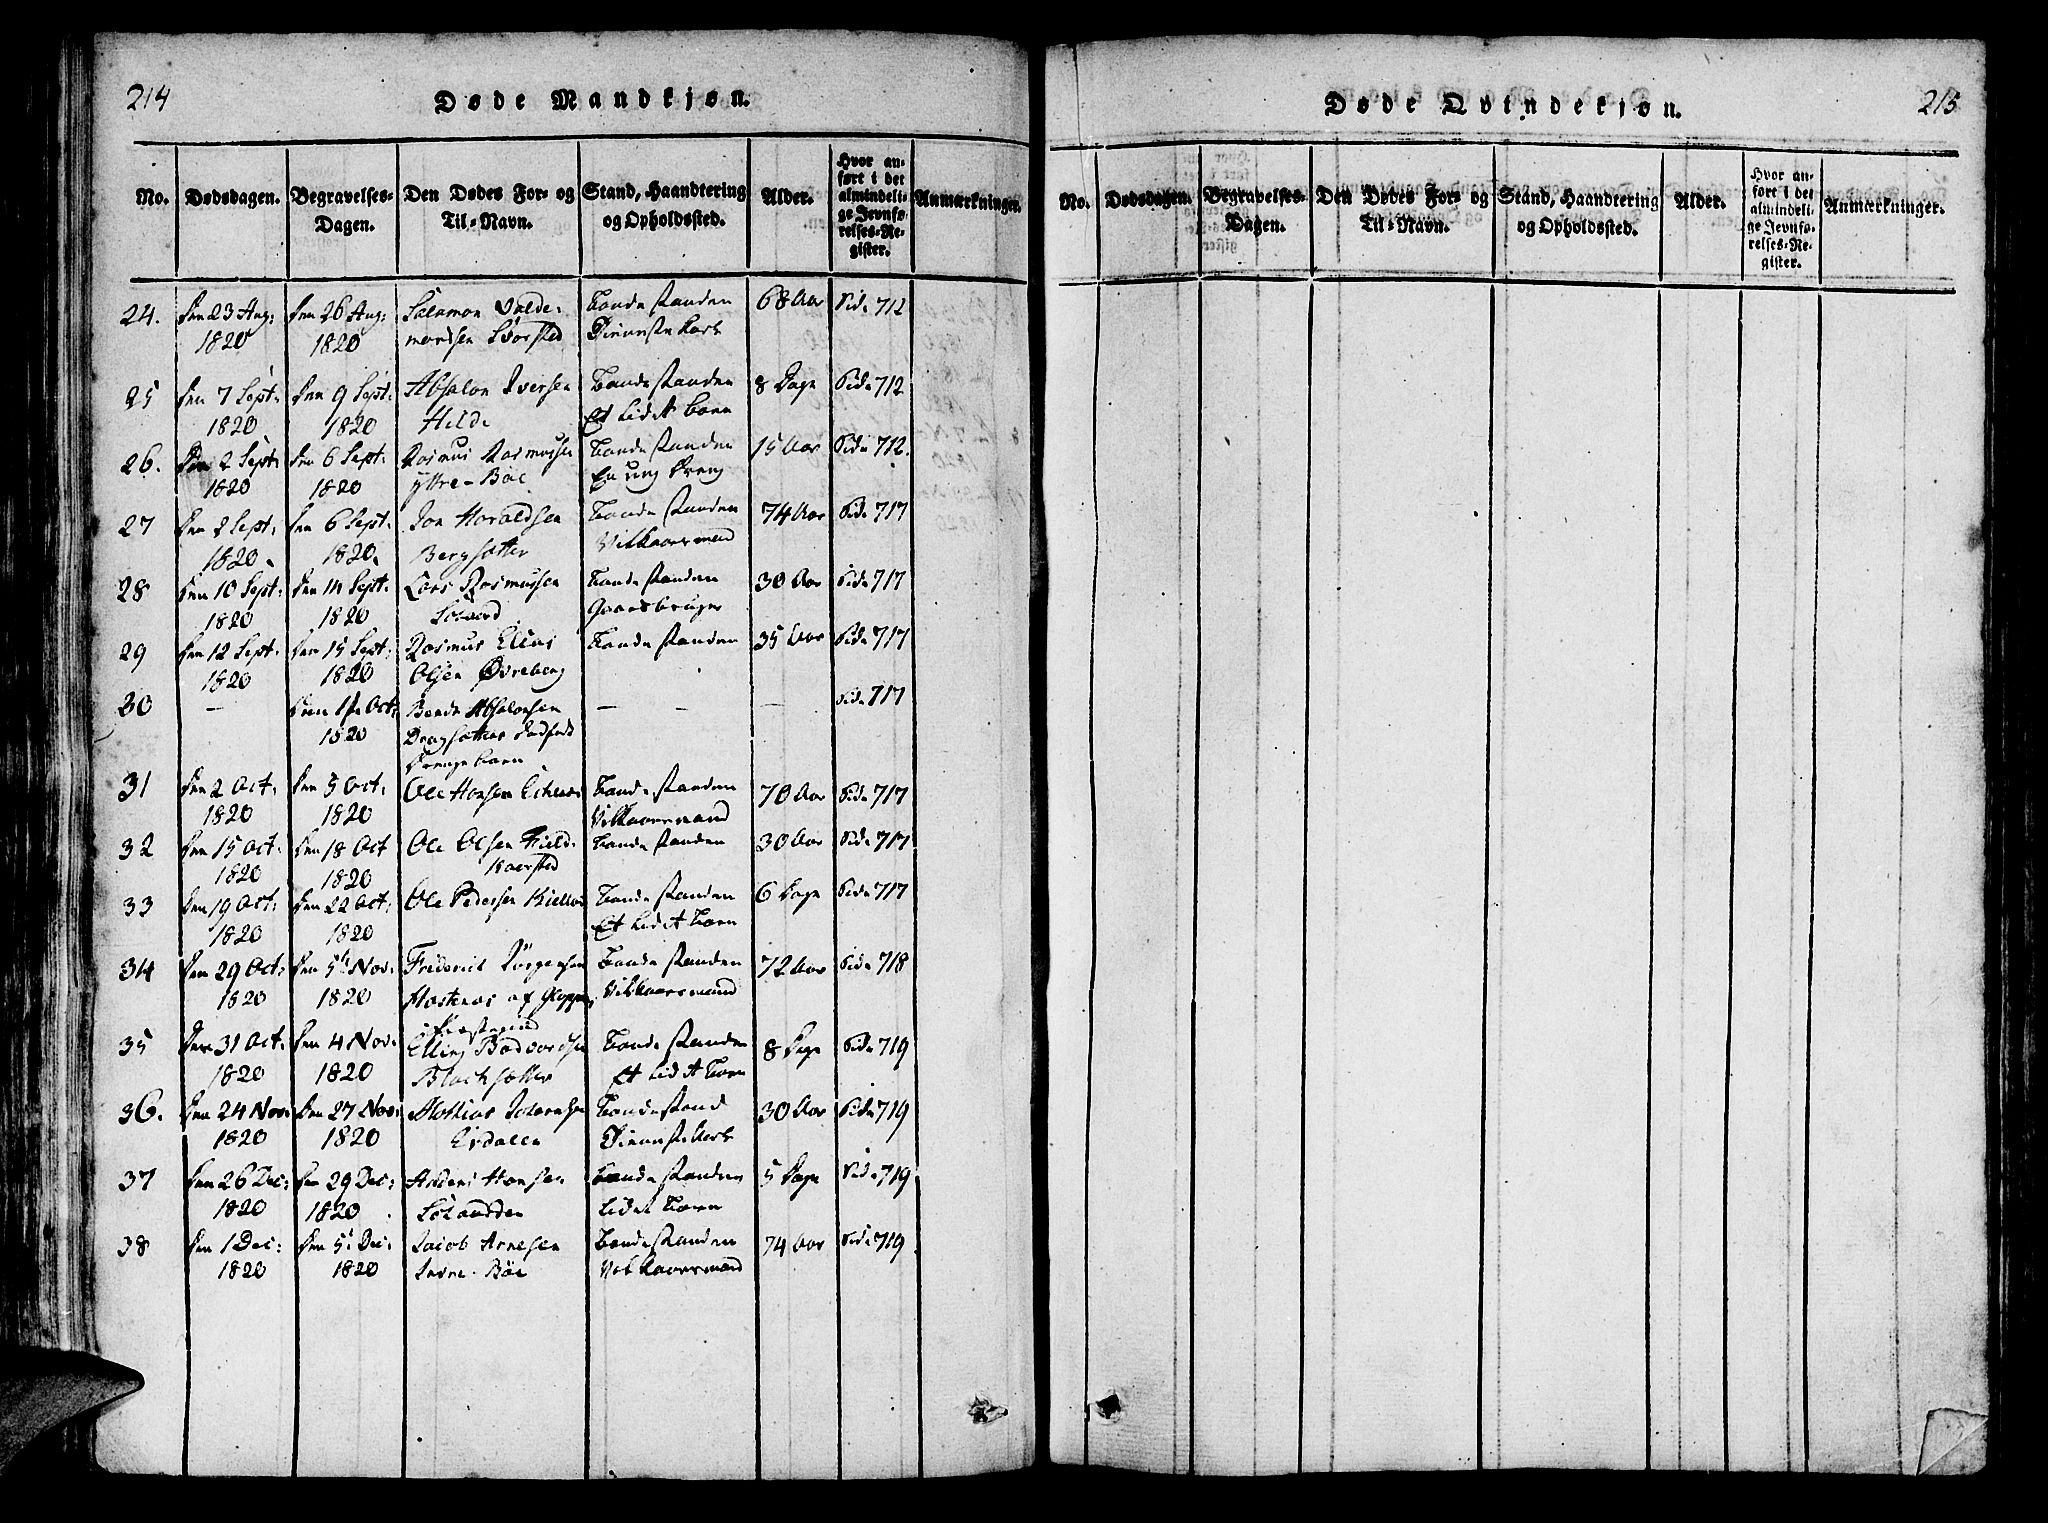 214
Døde Mandkjøn.
No.
Dødsdagen.
Begravelses-
Dagen.
Den Dødes For- og
Til-Navn.
Stand, Haandtering
og Opholdssted.
Alder.
Hvor an-
ført i det
almindeli-
ge Jevnfø-
relses-Re-
gister.
Anmærkninger.
24. Den 23 Aug: Den 26 Aug: Salamon Valde- Bonde standen 68 Aar Side 712
1820 1820 mordsen Tieneste karl
25 Den 7 Sept: Den 9 Sept: Absalon Iversen Bonde standen 8 Dage Side 712
1820 1820 Hilde Et lidet barn
26. Den 2 Sept: Den 6 Sept: Rasmus Rasmussen Bonde standen 15 Aar Side 712.
1820 1820 Yttre-Böe En ung Dreng
27 Den 2 Sept: Den 6 Sept: Jon Haraldsen Bonde standen 74 Aar Side 717
1820. 1820. Bergsætter Vilkaarsmand
28 Den 10 Sept: Den 14 Sept: Lars Rasmussen Bonde standen 30 Aar Side 717
1820 1820 Gaardbruger
29 Den 12 Sept: Den 15 Sept: Rasmus Elias Bonde standen 35 Aar Side 717
1820 1820 Olsen Øvreberg
30 – Den 1 Oct: Bende Absalonsen – – – Side 717
1820 Dragsætter dødfødt
Drenge barn
31 Den 2 Oct: Den 5 Oct: Ole Hansen Bonde standen 70 Aar Side 717
1820 1820 Vilkaarsmand
32 Den 15 Oct: Den 18 Oct Ole Olsen Bonde standen 30 Aar Side 717
1820 1820
33 Den 19 Oct: Den 22 Oct: Ole Pedersen Bonde standen 6 Dage Side 717
1820 1820 Et lidet barn
34 Den 29 Oct: Den 5 Nov: Friderich Jörgensen Bonde standen 72 Aar Side 718
1820 1820 af Vilkaarsmand
35 Den 31 Oct: Den 4 Nov: Elling Bonde standen 8 Dage Side 719
1820 1820 Et lidet barn
36. Den 24 Nov: Den 27 Nov: Mathias Johansen Bondestand 30 Aar Side 719
1820 1820 Erdalen Tienestekarl
37 Den 26 Dec: Den 29 Dec: Anders Hansen Bonde standen 5 Dage Side 719
1820 1820 Lidet barn
38 Den 1 Dec: Den 5 Dec: Jacob Arnesen Bonde standen 74 Aar Side 719
1820 1820 Indre-Böe Vilkaarsmand
Døde Qvindekjøn.
215
No.
Dødsdagen.
Begravelses-
Dagen.
Den Dødes For- og
Til-Navn.
Stand, Haandtering
og Opholdssted.
Alder.
Hvor an-
ført i det
almindeli-
ge Jevnfø-
relses-Re-
gister.
Anmærkninger.